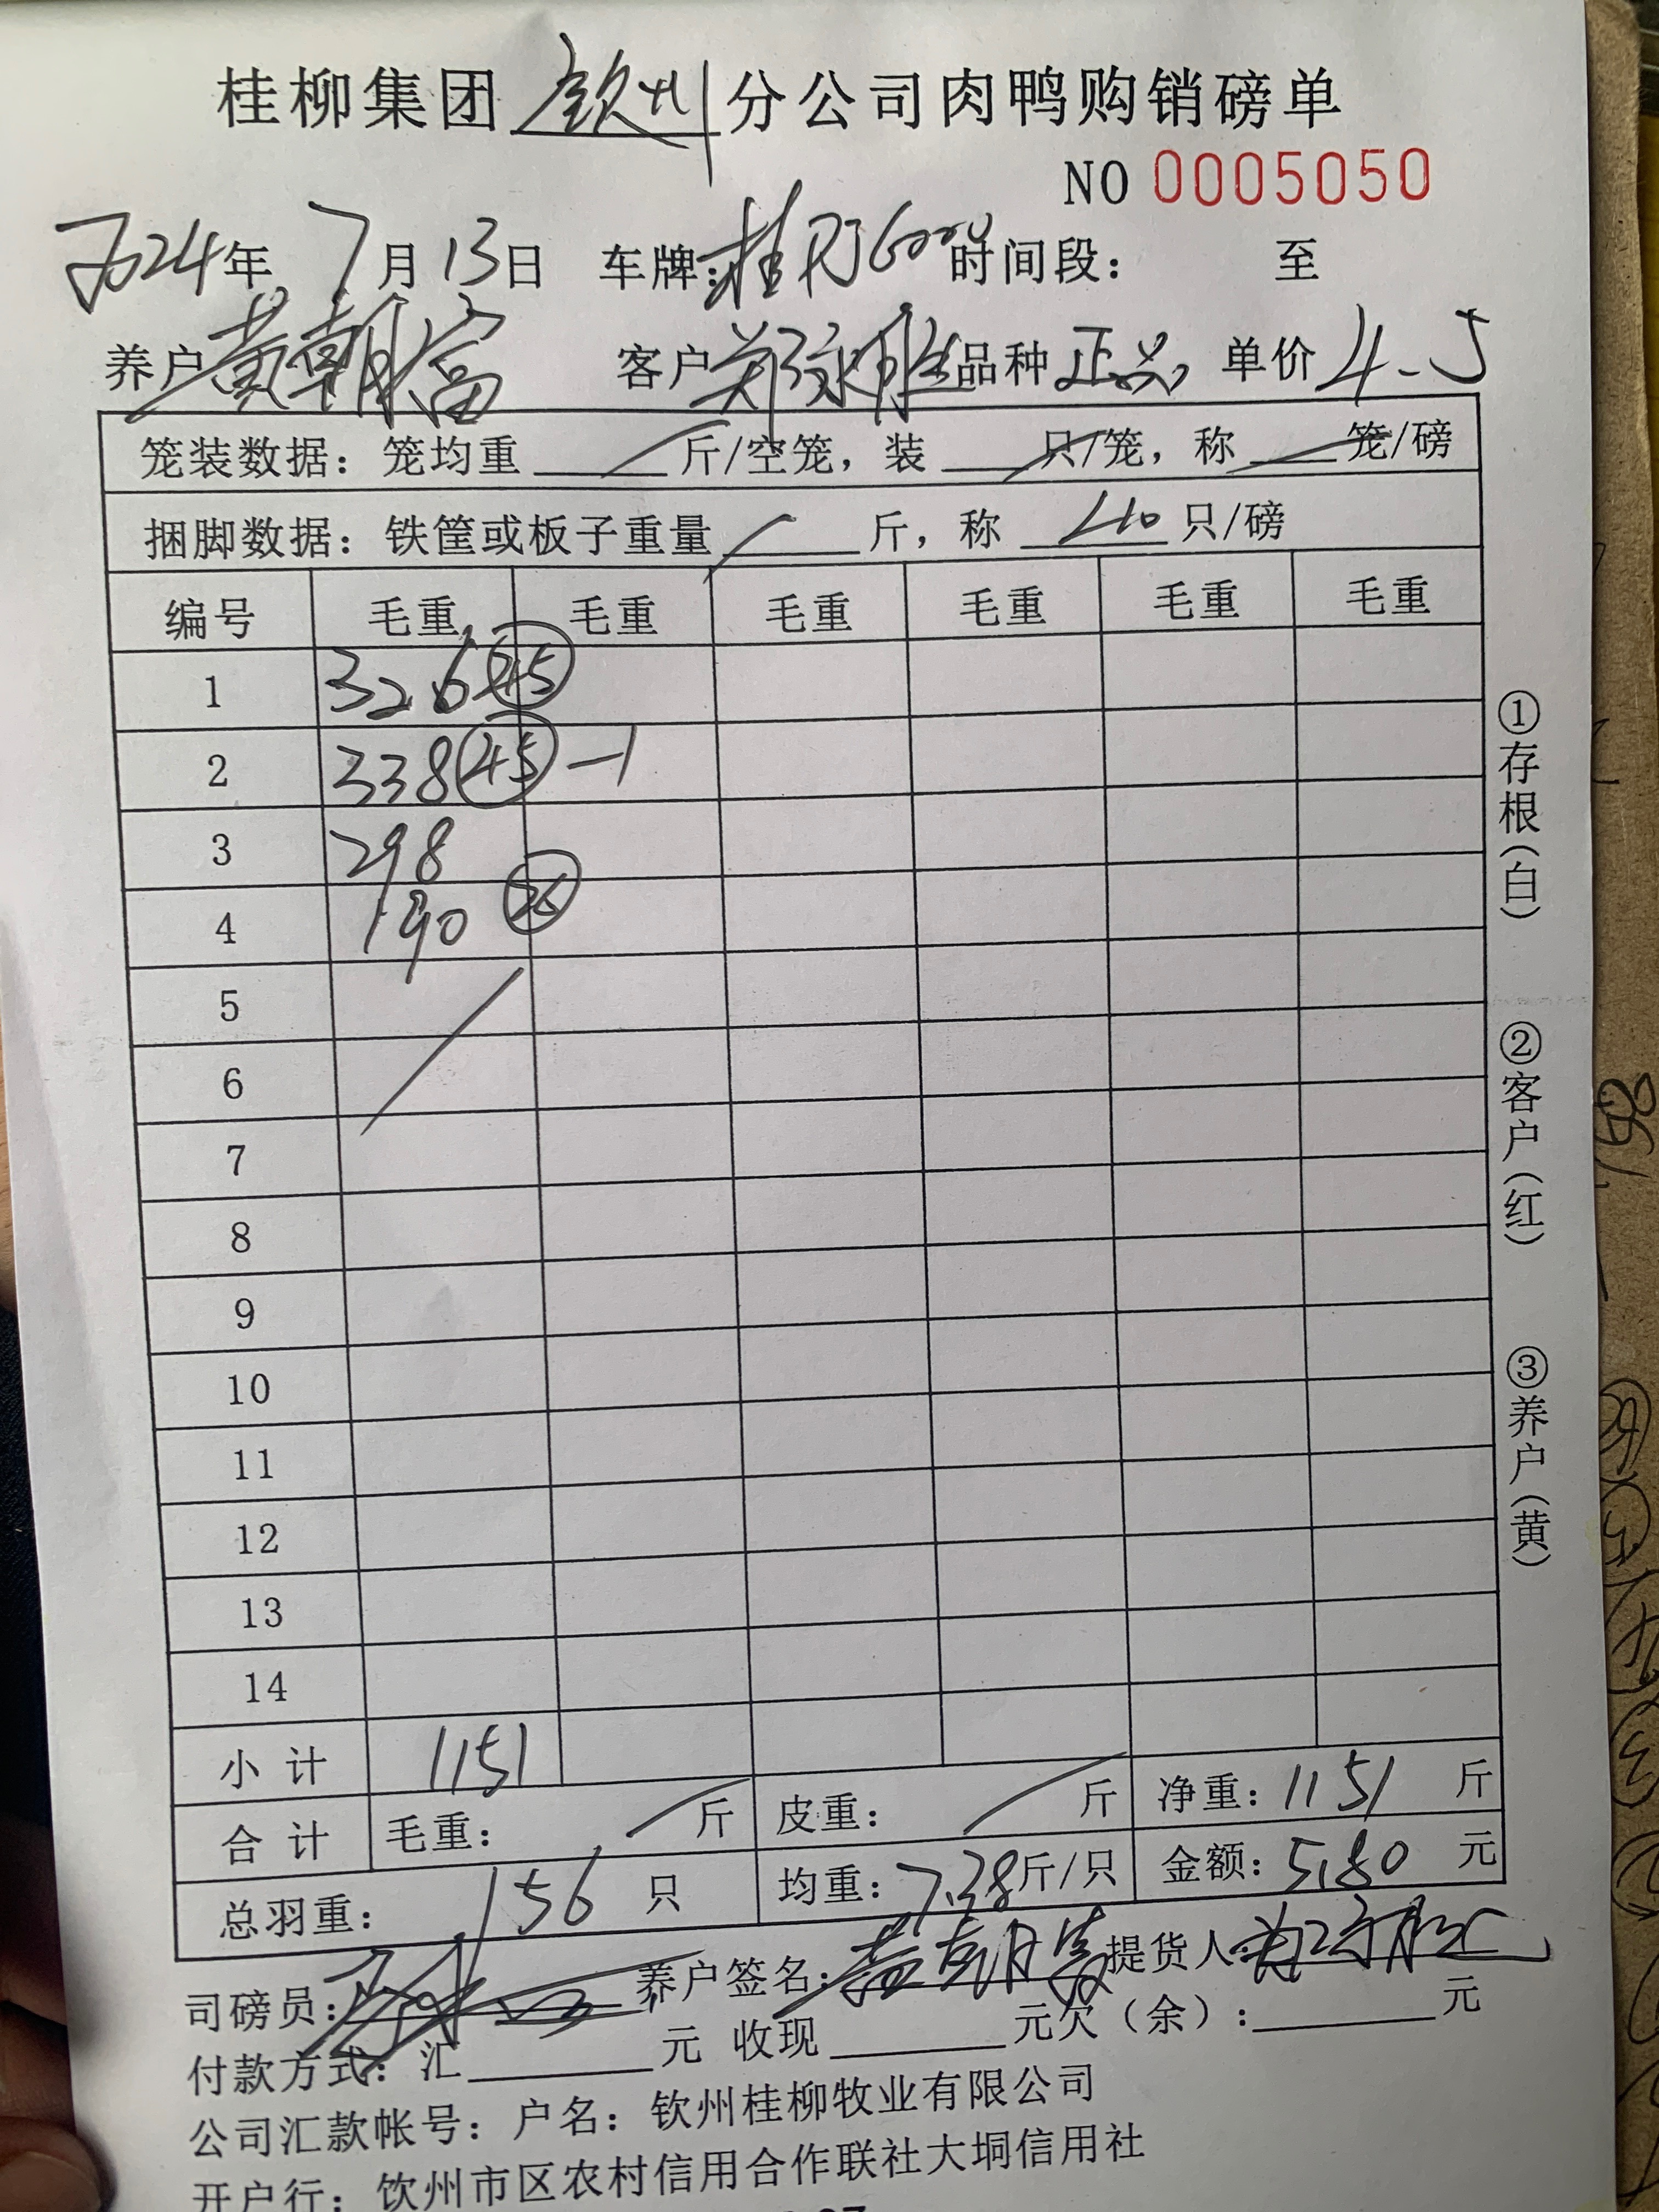 桂柳集团 钦州 分公司肉鸭购销磅单
NO 0005050
2024年 7月 13日 车牌: 时间段: 至
养户 黄朝富 客户 郑永胜 品种 正品 单价 4.5
笼装数据: 笼均重 斤/空笼, 装 只/笼, 称 笼/磅
捆脚数据: 铁筐或板子重量 斤, 称 40 只/磅
编号 毛重 毛重 毛重 毛重 毛重 毛重
1 326 45
2 338 45 -1
3 298
4 190 26
5
6
7
8
9
10
11
12
13
14
小计 1151
合计 毛重: 斤 皮重: 斤 净重: 1151 斤
总羽重: 156 只 均重: 7.38斤/只 金额: 5180 元
司磅员: 养户签名: 黄朝富 提货人:
付款方式: 汇 元 收现 元欠(余): 元
公司汇款帐号: 户名: 钦州桂柳牧业有限公司
开户行: 钦州市区农村信用合作联社大垌信用社
①存根(白)
②客户(红)
③养户(黄)